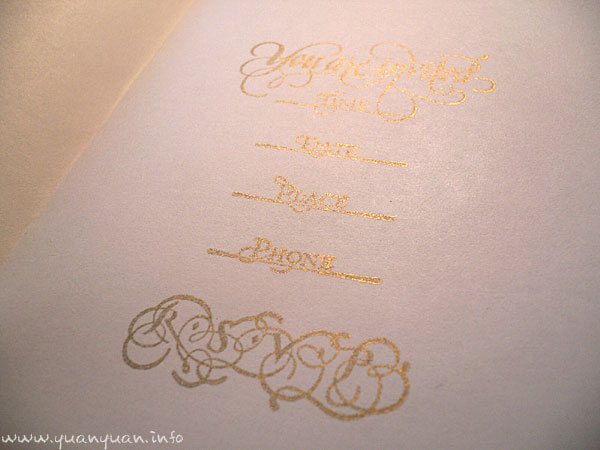 You are invited
TIME
DATE
PLACE
PHONE
R.S.V.P.
www.yuanyuan.info